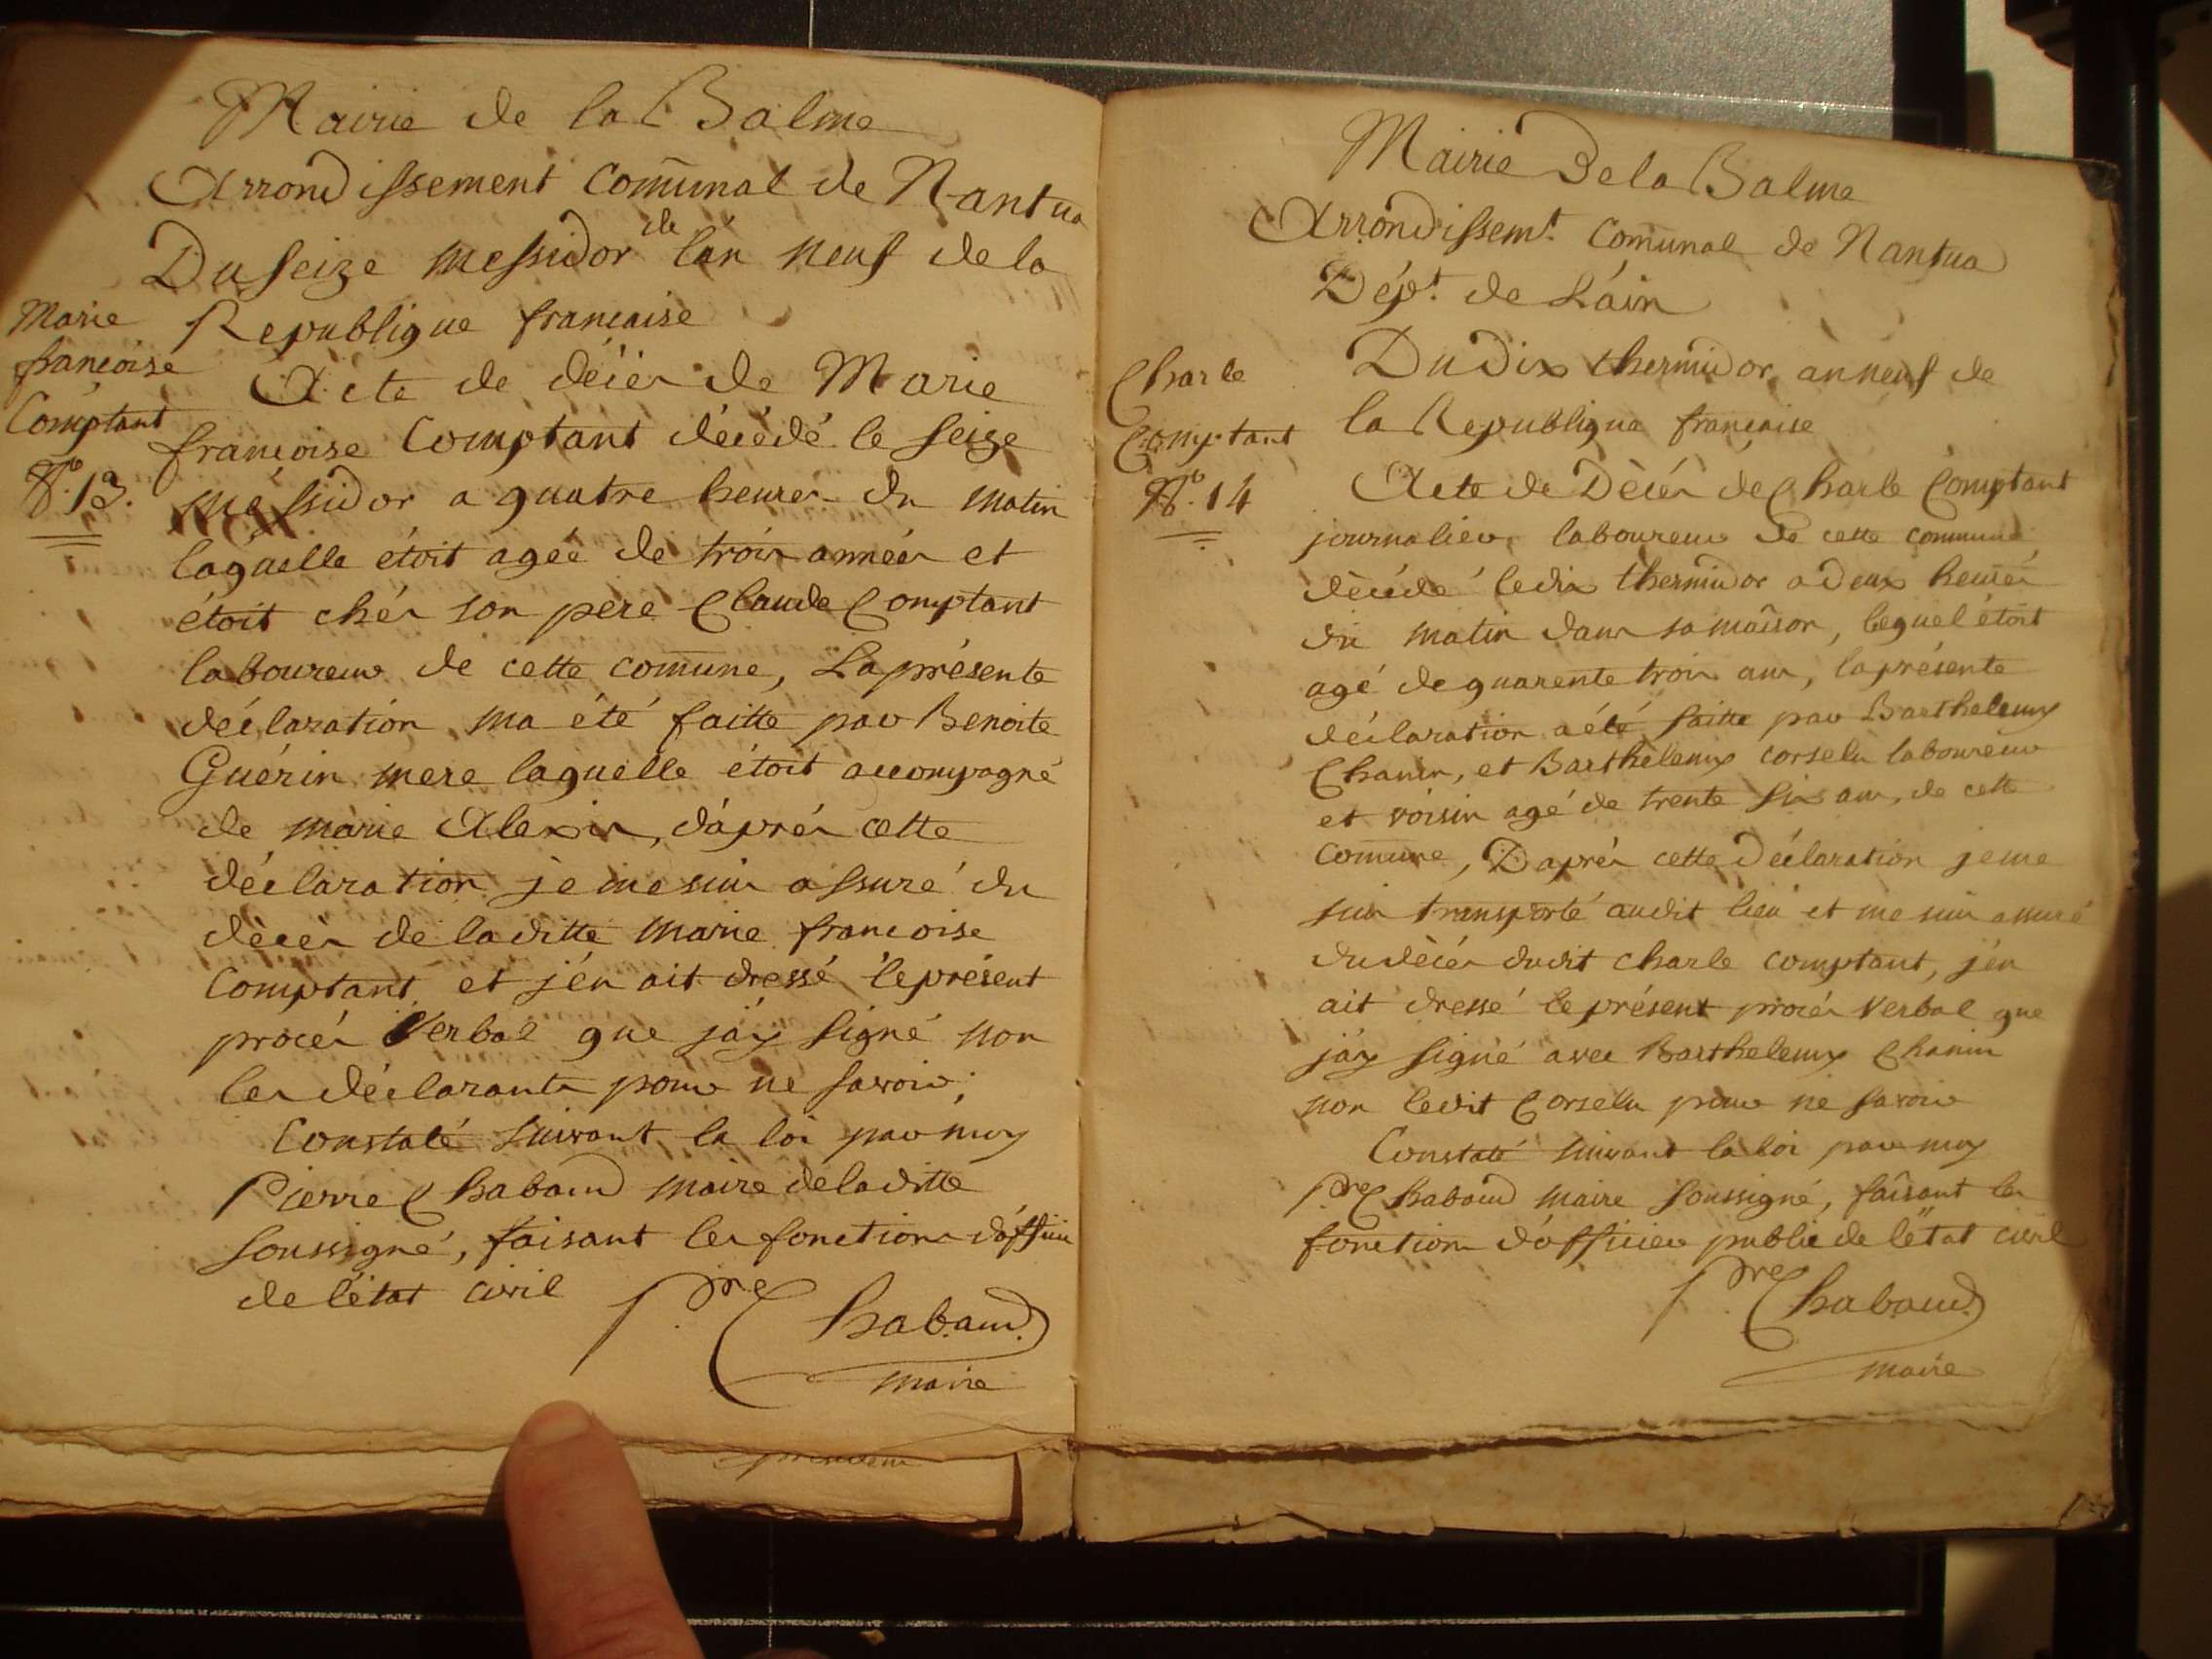 Mairie de la Balme
Arrondissement Com̄unal de Nantua
Du seize messidor de l'an neuf de la
Republique francaise
Marie
francoise
Comptant
N° 13.
Acte de décès de Marie
francoise Comptant décédé le seize
messidor a quatre heures du matin
laquelle étoit agée de trois années et
étoit chés son pere Claude Comptant
laboureur de cette com̄une, La présente
déclaration ma été faitte par Benoite
Guérin mere laquelle étoit accompagné
de marie Alexis, d'aprés cette
déclaration je me suis assuré du
décès de laditte marie francoise
Comptant et j'en ait dressé le présent
procés verbal que j'ay signé non
les déclarants pour ne savoir;
Constaté suivant la loi par moy
Pierre Chabaud maire de laditte
soussigné, faisant les fonctions d'officier
de l'état civil
Pre Chabaud
maire
Mairie De la Balme
Arrondissemt. Com̄unal de Nantua
Dépt. de L'ain
Du Dix thermidor an neuf de
la Republique francaise
Charle
Comptant
N° 14
Acte de Décès de Charle Comptant
journalier laboureur de cette commune
décédé le dix thermidor a deux heures
du matin dans sa maison, lequel étoit
agé de quarente trois ans, la présente
déclaration a été faitte par Barthelemy
Chanin, et Barthélemy corselu laboureur
et voisin agé de trente six ans, de cette
com̄une, D'aprés cette Déclaration je me
suis transporté audit lieu et me suis assuré
du décés dudit charle comptant, j'en
ait dressé le présent procés verbal que
j'ay signé avec Barthelemy Chanin
non ledit Corselu pour ne savoir
Constaté suivant la loi par moy
Pre Chabaud maire soussigné, faisant les
fonctions d'officier public de l'état civil
Pre Chabaud
maire